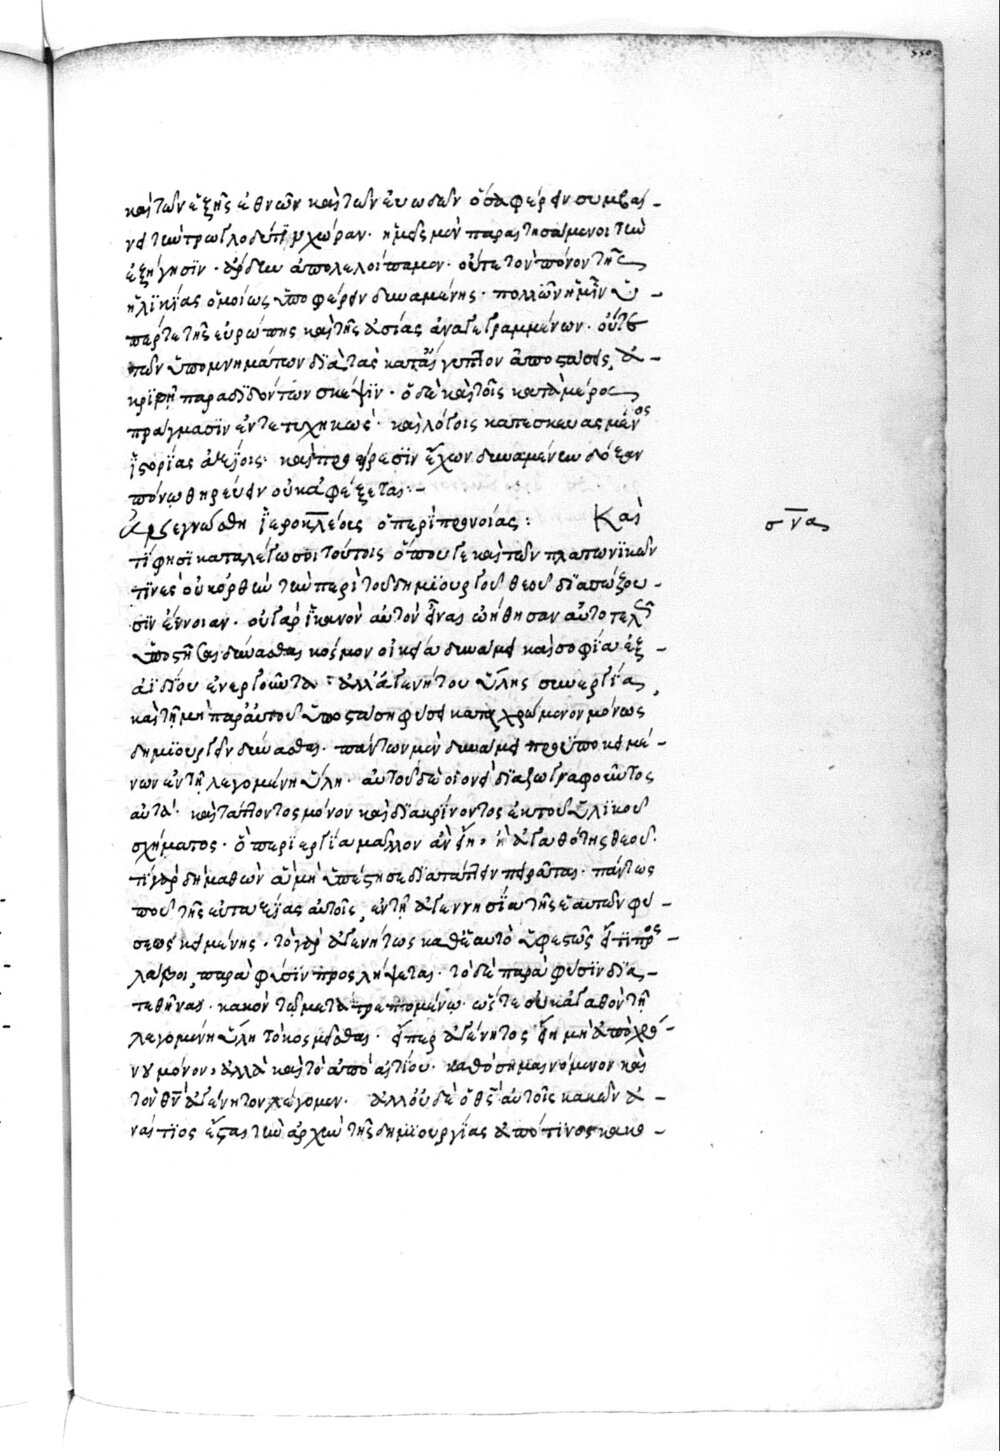 καὶ τῶν ἑξῆς ἐθνῶν καὶ τῶν εὐωδῶν ὅσα φέρειν συμβαί-
νει τὴν τρωγλοδύτιν χώραν. ἡμεῖς μὲν παραιτησάμενοι τὴν
ἐξήγησιν. ἄρδην ἀπολελοίπαμεν. οὔτε τὸν πόνον τῆς
ἡλικίας ὁμοίως ὑποφέρειν δυναμένης. πολλῶν ἡμῖν ὑ-
πέρ τε τῆς εὐρώπης καὶ τῆς ἀσίας ἀναγεγραμμένων. οὔτε
τῶν ὑπομνημάτων διὰ τὰς κατ' αἴγυπτον ἀποστάσεις ἀ-
κριβῆ παραδιδόντων σκέψιν. ὁ δὲ καὶ τοῖς κατὰ μέρος
πράγμασιν ἐντετυχηκὼς. καὶ λόγοις κατεσκευασμένος
ἱστορίας ἀξίοις. καὶ προαίρεσιν ἔχων δυναμένην δόξαν
πόνῳ θηρεύειν οὐκ ἀφέξεται:-
Ἀνεγνώσθη ἱεροκλέους ὁ περὶ προνοίας: Καὶ
τί φησι καταλέγω σοι τούτοις ὅπου γε καὶ τῶν πλατωνικῶν
τινες οὐκ ὀρθὴν τὴν περὶ τοῦ δημιουργοῦ θεοῦ διασώζου-
σιν ἔννοιαν. οὐ γὰρ ἱκανὸν αὐτὸν εἶναι ᾠήθησαν αὐτοτελῆ
ὑποστῆσαι δύνασθαι κόσμον οἰκείᾳ δυνάμει καὶ σοφίᾳ ἐξ
ἀϊδίου ἐνεργοῦντα. ἀλλ' ἀγενήτου ὕλης συνεργίᾳ,
καὶ τῇ μὴ παρ' αὐτοῦ ὑποστάσῃ φύσει καταχρώμενον μόνως
δημιουργεῖν δύνασθαι. πάντων μὲν δυνάμει προϋποκειμέ-
νων ἐν τῇ λεγομένῃ ὕλῃ. αὐτοῦ δὲ οἱονεὶ διαζωγραφοῦντος
αὐτά. καὶ τάττοντος μόνον καὶ διακρίνοντος ἐκ τοῦ ὑλικοῦ
σχήματος. ὃ περιεργία μᾶλλον ἂν εἴη, ἢ ἀγαθότης θεοῦ.
τί γὰρ δὴ μαθὼν ἃ μὴ ὑπέστησε διατάττειν πειρᾶται. πάντως
που τῆς εὐταξίας αὐτοῖς, ἐν τῇ ἀγεννησίᾳ τῆς ἑαυτῶν φύ-
σεως κειμένης. τὸ γὰρ ἀγενήτως καθ' ἑαυτὸ ὑφεστὼς εἴ τι προς
λάβοι, παρὰ φύσιν προσλήψεται. τὸ δὲ παρὰ φύσιν δια-
τεθῆναι. κακὸν τῷ μετατρεπομένῳ. ὥστε οὐκ ἀγαθὸν τῇ
λεγομένῃ ὕλῃ τὸ κοσμεῖσθαι. εἴπερ ἀγένητος εἴη μὴ ἀπὸ χρό-
νου μόνον, ἀλλὰ καὶ τὸ ἀπὸ αἰτίου. καθὸ σημαινόμενον καὶ
τὸν θν ἀγένητον λέγομεν. ἀλλ' οὐδὲ ὁ θς αὐτοῖς κακῶν ἀ-
ναίτιος ἔσται τὴν ἀρχὴν τῆς δημιουργίας ἀπό τινος κακο-
σνα